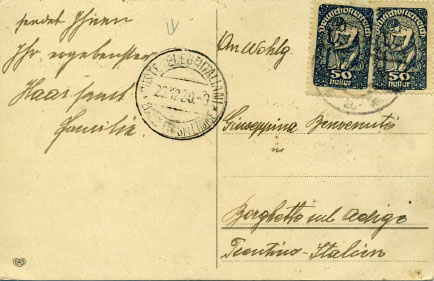 sendet Ihnen
Ihr ergebenster
Haas samt
Familie.
POSTE E TELEGRAFI (ALTANI)
22.12.20.-9
An Wohlg.
Deutschösterreich
50
heller
Deutschösterreich
50
heller
Giuseppina Benvenuti
in
Borghetto sul Adige
Trentino-Italien